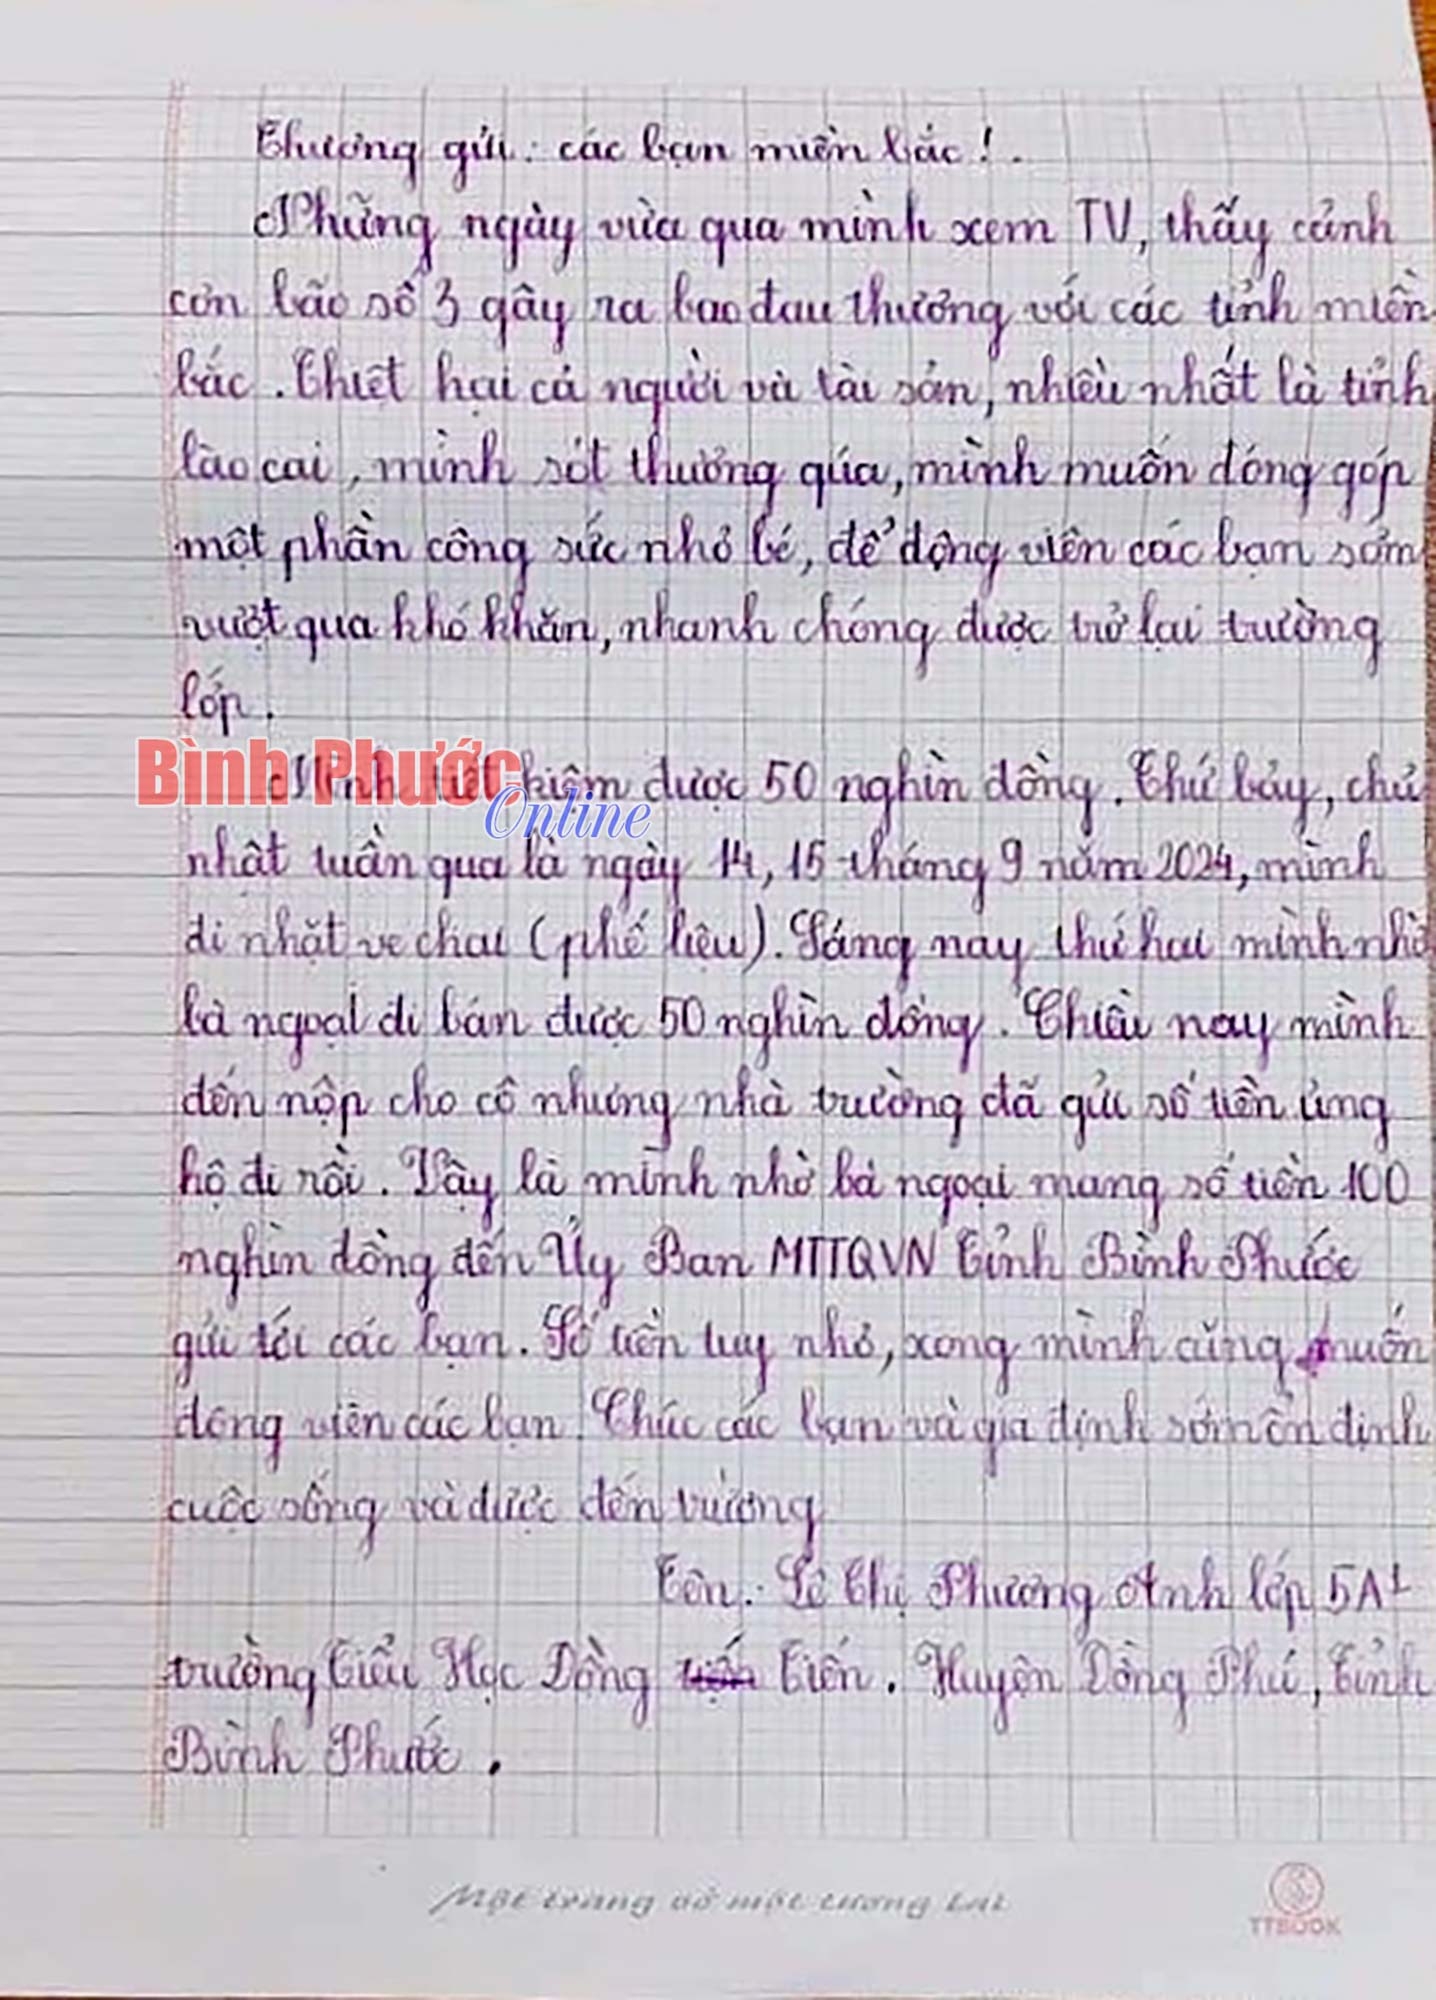 Thương gửi: các bạn miền bắc!.
Những ngày vừa qua mình xem TV, thấy cảnh
cơn bão số 3 gây ra bao đau thương với các tỉnh miền
bắc. Thiệt hại cả người và tài sản, nhiều nhất là tỉnh
lào cai, mình sót thương qúa, mình muốn đóng góp
một phần công sức nhỏ bé, để động viên các bạn sớm
vượt qua khó khăn, nhanh chóng được trở lại trường
lớp.
Bình Phước
Online
Mình tiết kiệm được 50 nghìn đồng. Thứ bảy, chủ
nhật tuần qua là ngày 14, 15 tháng 9 năm 2024, mình
đi nhặt ve chai (phế liệu). Sáng nay thứ hai mình nhờ
bà ngoại đi bán được 50 nghìn đồng. Chiều nay mình
đến nộp cho cô nhưng nhà trường đã gửi số tiền ủng
hộ đi rồi. Vậy là mình nhờ bà ngoại mang số tiền 100
nghìn đồng đến Ủy Ban MTTQVN Tỉnh Bình Phước
gửi tới các bạn. Số tiền tuy nhỏ, xong mình cũng muốn
động viên các bạn. Chúc các bạn và gia định sớm ổn định
cuộc sống và được đến trường
Tên: Lê Thị Phương Anh lớp 5A1
trường Tiểu Học Đồng Tiến. Huyện Đồng Phú, Tỉnh
Bình Phước.
Một trang vở một tương lai
TTBOOK